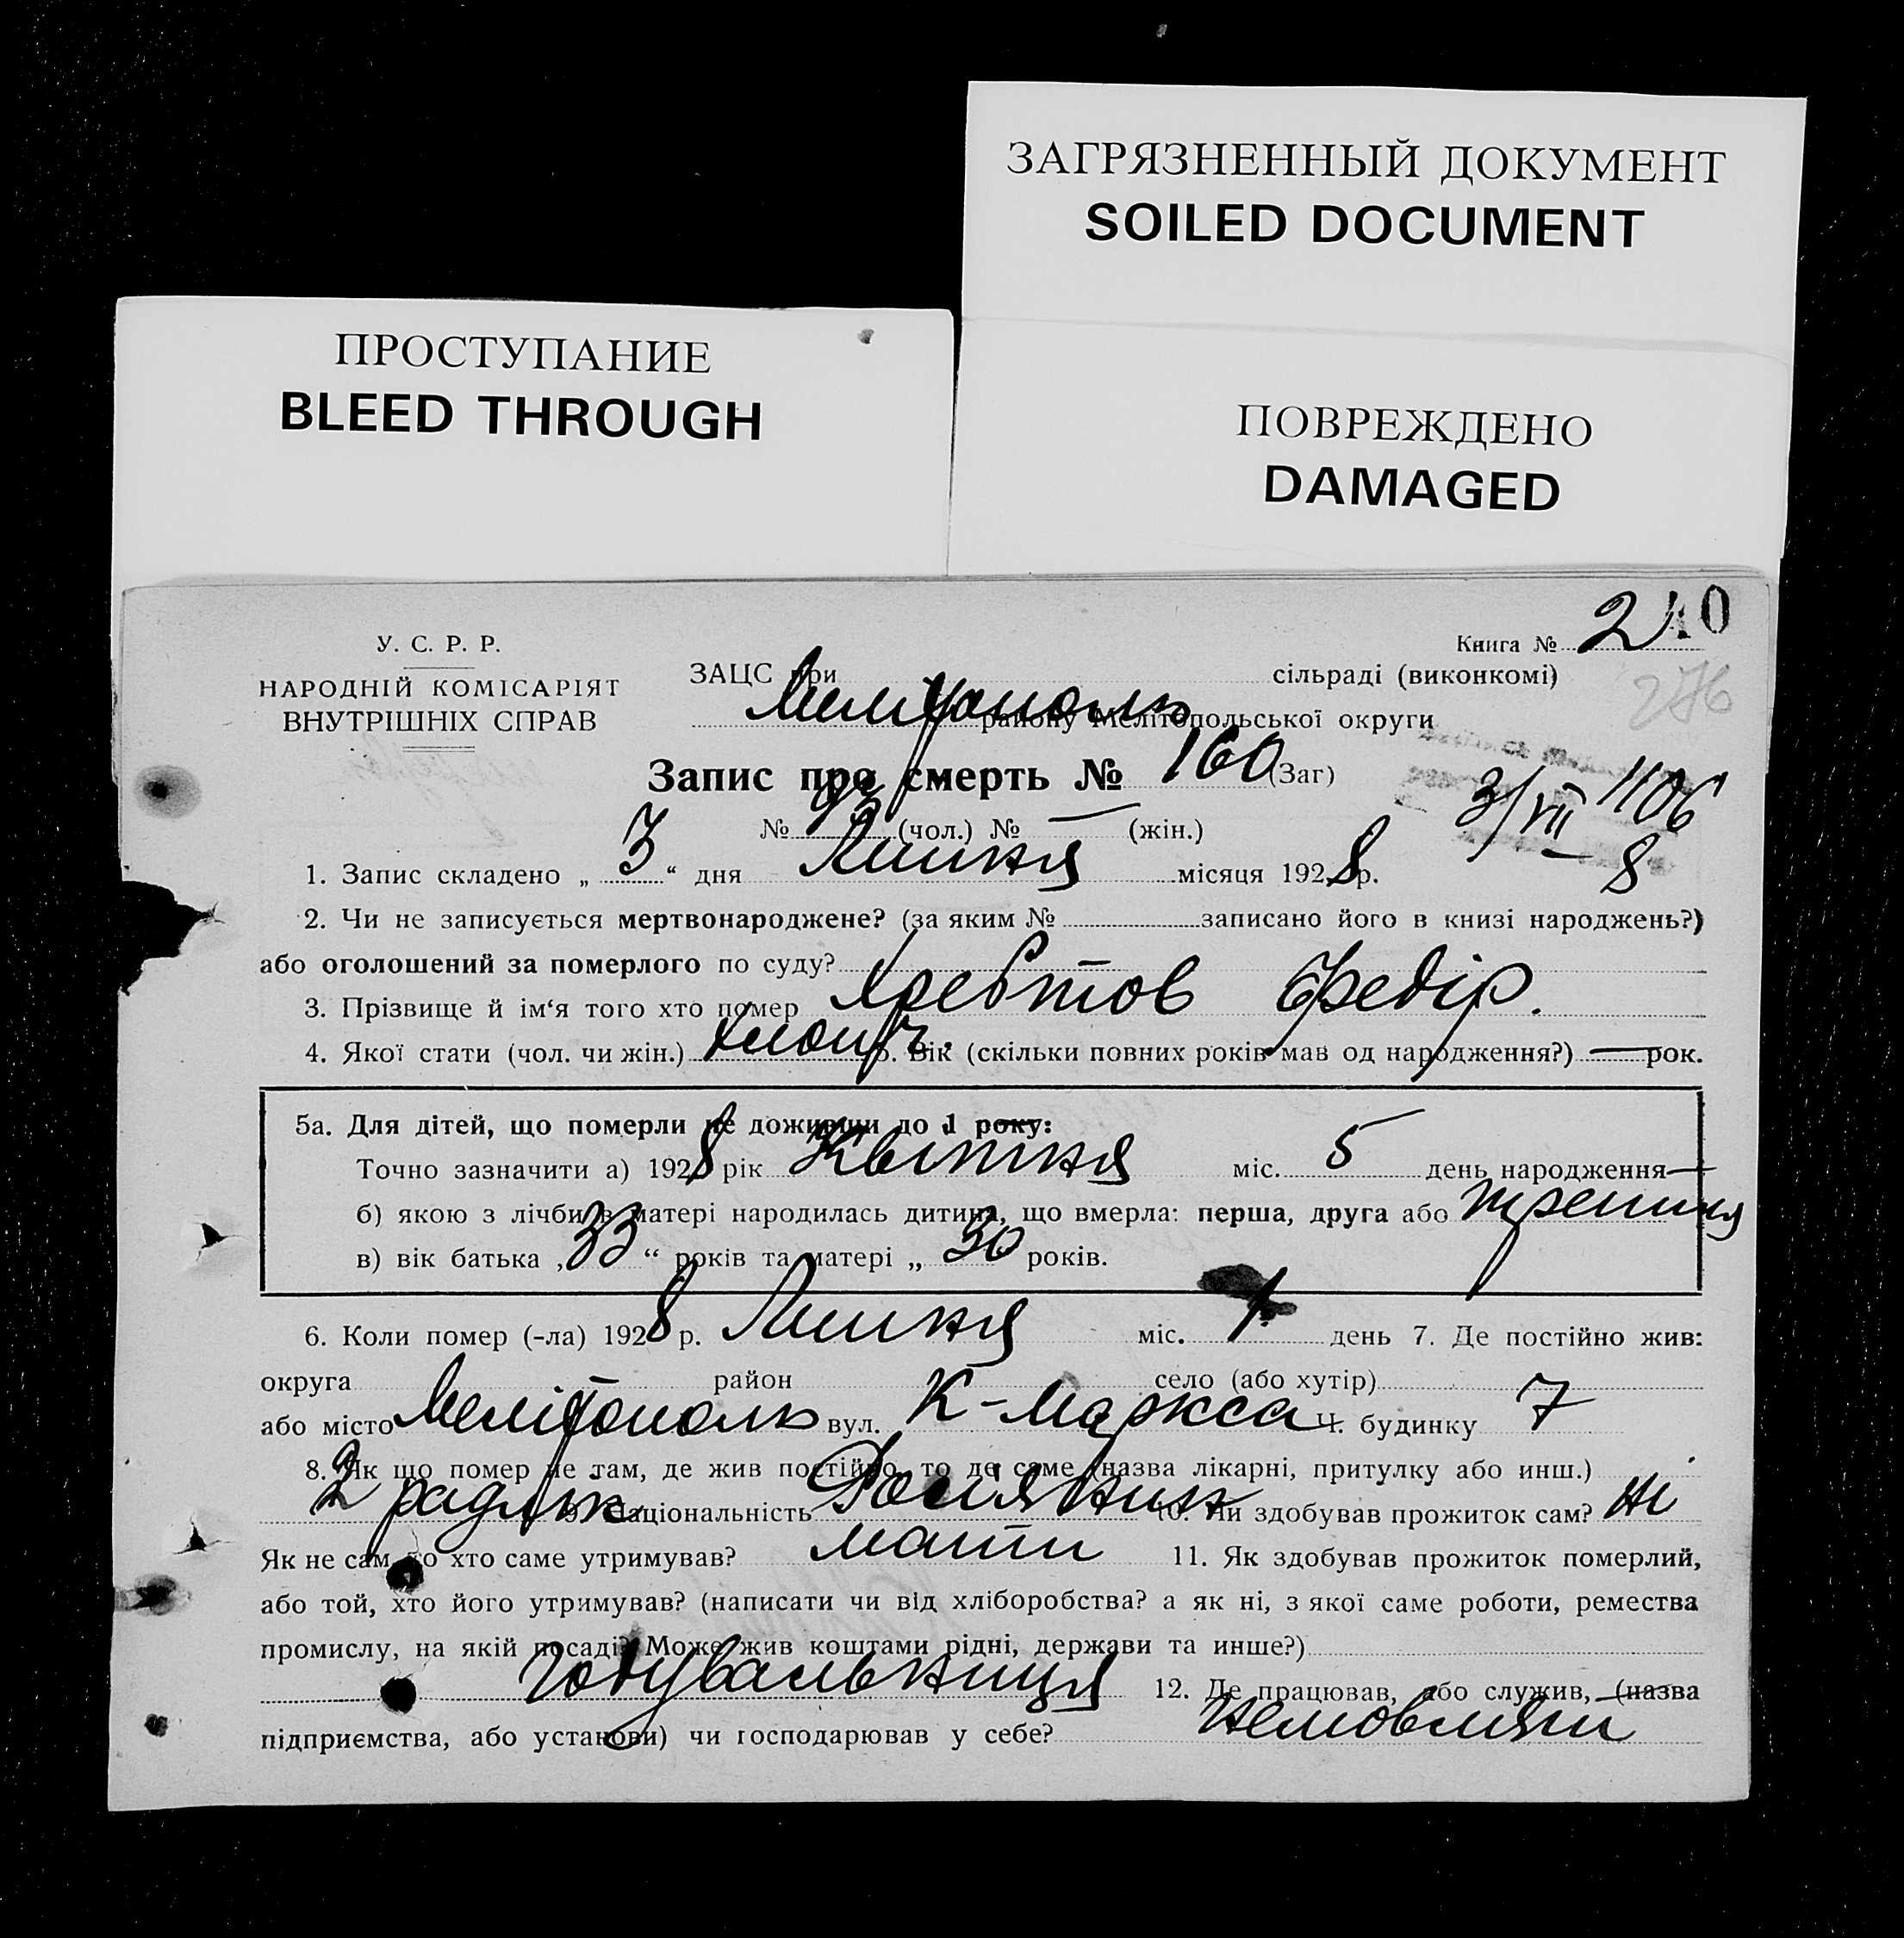 ЗАГРЯЗНЕННЫЙ ДОКУМЕНТ
SOILED DOCUMENT
ПРОСТУПАНИЕ
BLEED THROUGH
ПОВРЕЖДЕНО
DAMAGED
У. С. Р. Р.
НАРОДНІЙ КОМІСАРІЯТ
ВНУТРІШНІХ СПРАВ
Книга № 2
10
276
ЗАЦС при сільраді (виконкомі)
Мелітополь району Мелітопольської округи
Запис про смерть № 160 (Заг)
3/VII 1106
8
№ 93 (чол.) № — (жін.)
1. Запис складено „ 3 “ дня Липня місяця 1928 р.
2. Чи не записується мертвонароджене? (за яким № записано його в книзі народжень?)
або оголошений за померлого по суду?
3. Прізвище й ім‘я того хто помер Федір.
4. Якої стати (чол. чи жін.) хлопч. 5. Вік (скільки повних років мав од народження?) — рок.
5а. Для дітей, що померли не доживши до 1 року:
Точно зазначити а) 1928 рік Квітня міс. 5 день народження
б) якою з лічби в матері народилась дитина, що вмерла: перша, друга або третиня
в) вік батька „ 33 “ років та матері „ 30 років.
6. Коли помер (-ла) 1928 р. Липня міс. 1 день 7. Де постійно жив:
округа район село (або хутір)
або місто Мелітополь вул. К-Маркса Ч. будинку 7
8. Як що помер не там, де жив постійно, то де саме (назва лікарні, притулку або инш.)
2 радлік. 9. Національність Росіянин 10. Чи здобував прожиток сам? Ні
Як не сам, то хто саме утримував? мати 11. Як здобував прожиток померлий,
або той, хто його утримував? (написати чи від хліборобства? а як ні, з якої саме роботи, ремества
промислу, на якій посаді? Може жив коштами рідні, держави та инше?)
годувальниця 12. Де працював, або служив, (назва
підприємства, або установи) чи господарював у себе? немовляти